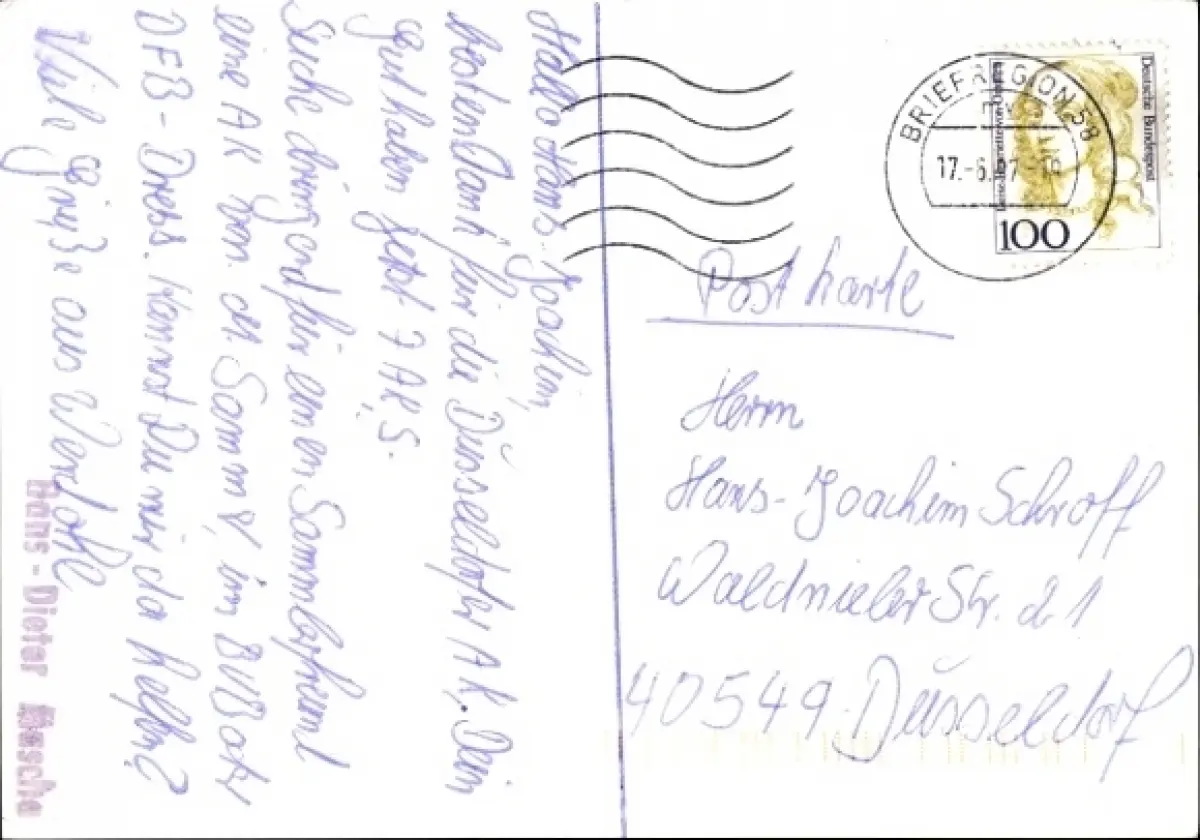 Hallo Hans-Joachim,
besten Dank für die Düsseldorfer AK. Dein
Guthaben jetzt 7 AK'S.
Suche dringend für einen Sammlerfreund
eine AK von der Samml, im
DFB-Dress. Kannst Du mir da helfen?
Viele Grüße aus Werdohl
Hans-Dieter
BRIEFREGION 58
17.-6.
Deutsche Bundespost
100
Postkarte
Herrn
Hans-Joachim Schroff
Waldnieler Str. 21
40549 Düsseldorf